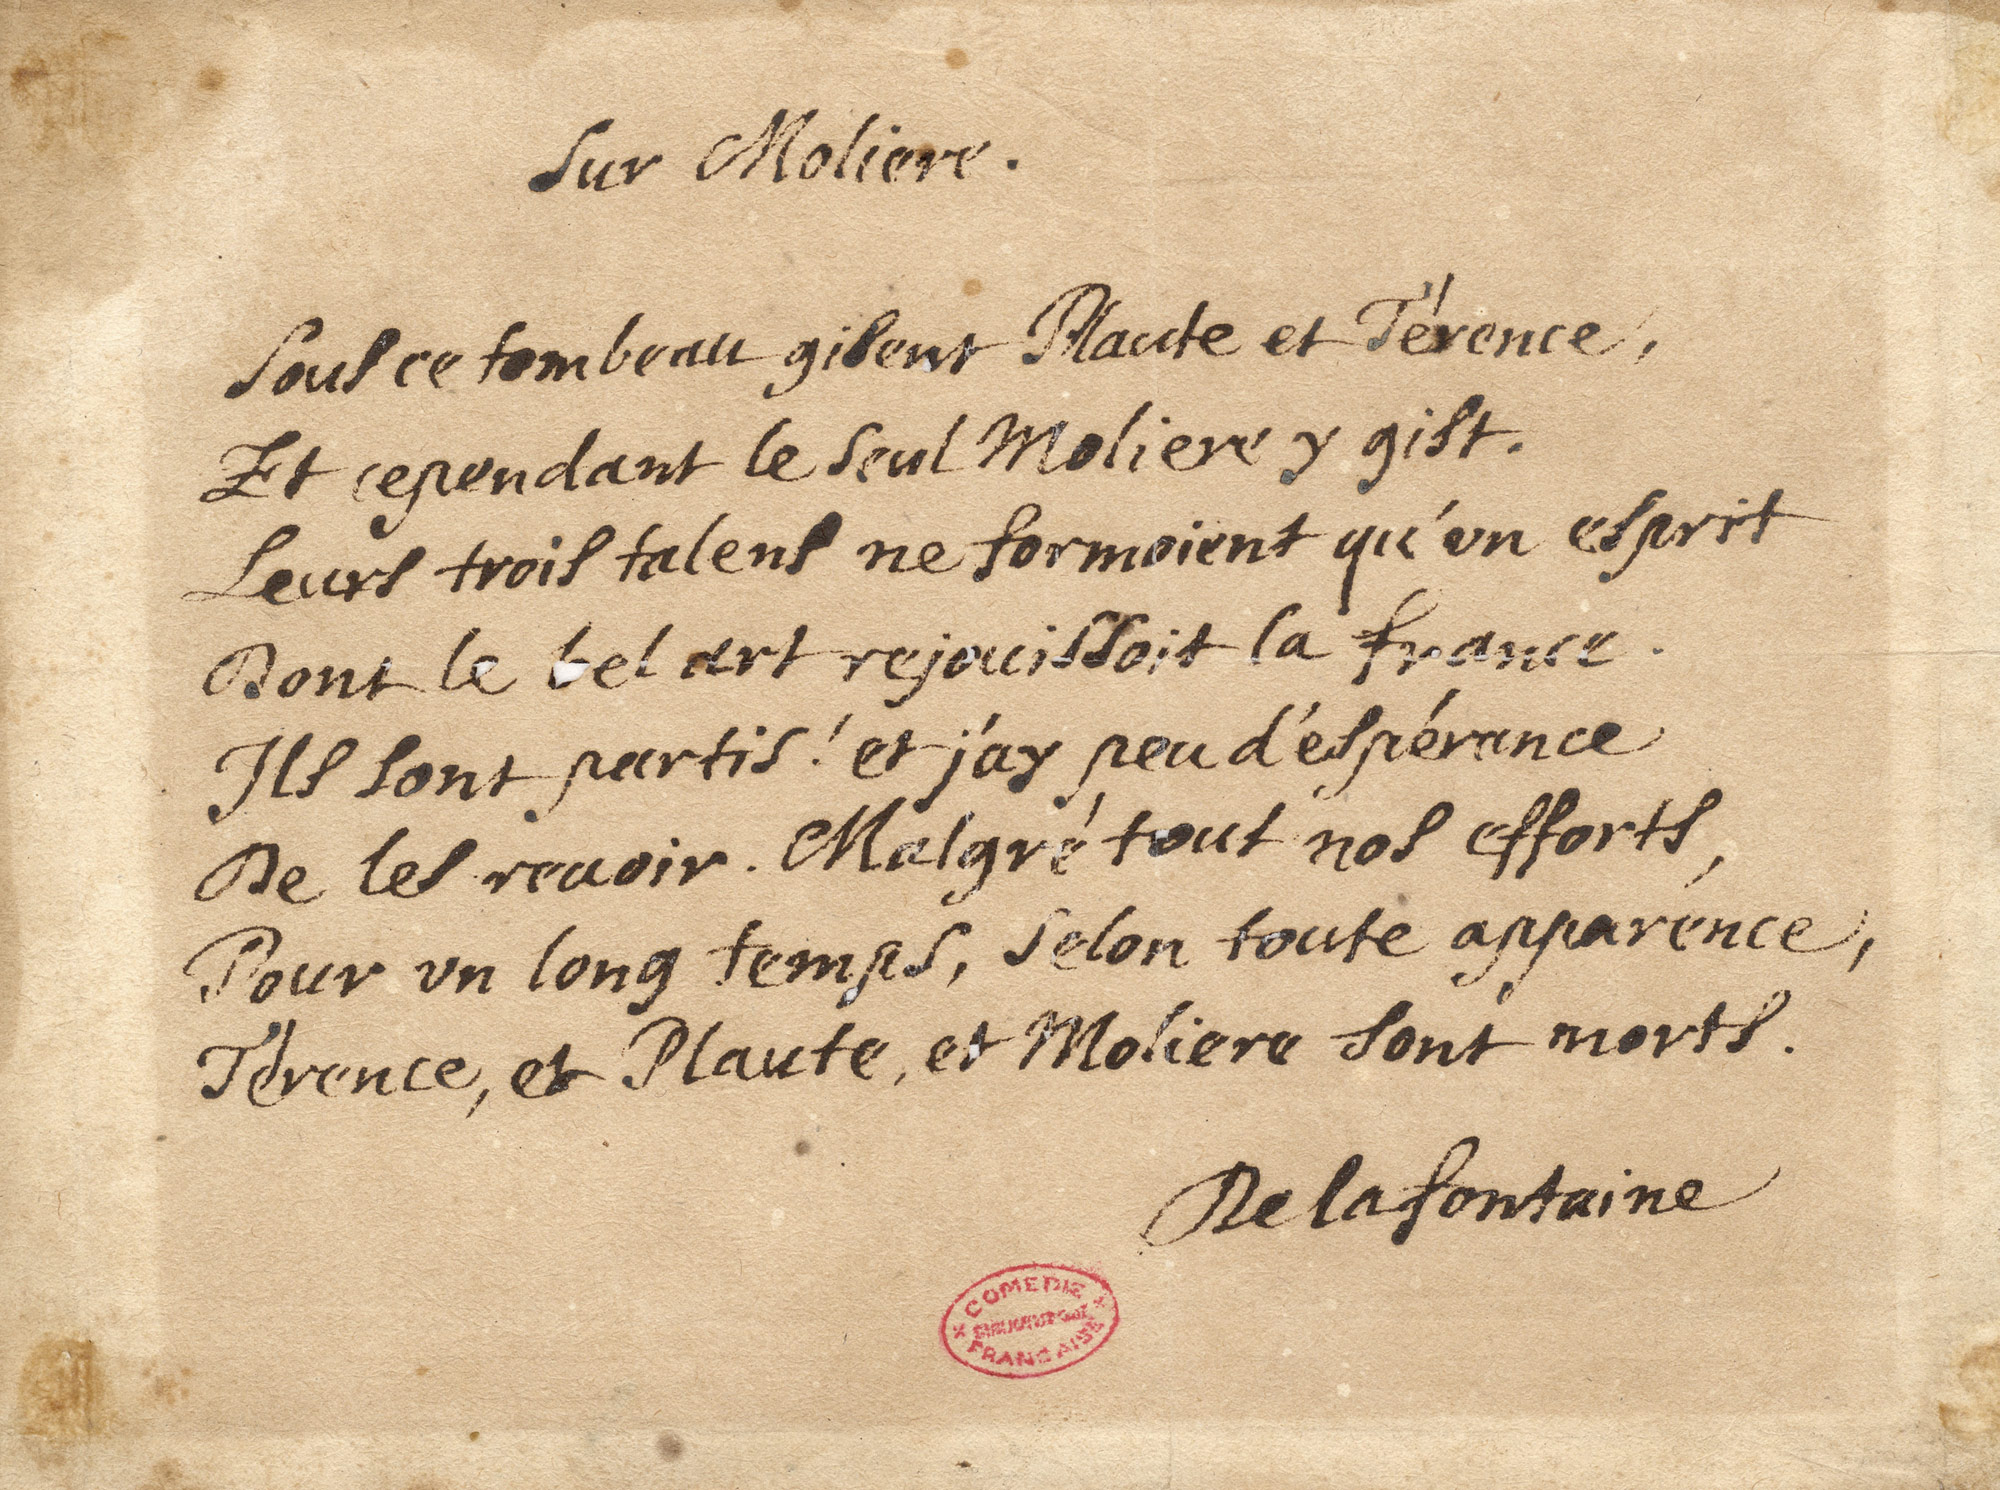 Sur Moliere.
Sous ce tombeau gisent Plaute et Térence,
Et cependant le seul Moliere y gist.
Leurs trois talens ne formoient qu'vn esprit
Dont le bel art rejouissoit la france.
Ils sont partis! et j'ay peu d'espérance
De les reuoir. Malgré tout nos efforts,
Pour vn long temps, selon toute apparence,
Térence, et Plaute, et Moliere sont morts.
De la fontaine
COMEDIE
FRANCAISE